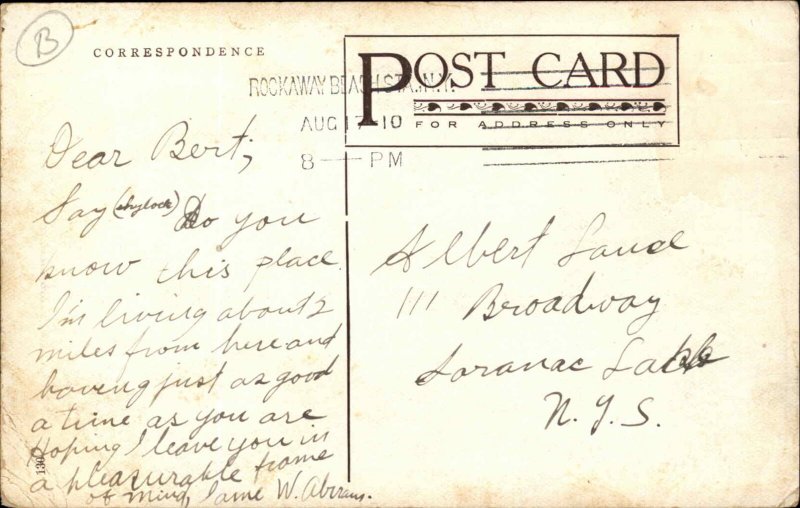 B
CORRESPONDENCE
POST CARD
FOR ADDRESS ONLY
ROCKAWAY BEACH STA. N.Y.
AUG 17 10
8 PM
Dear Bert,
Say (shylock) Do you
know this place.
I'm living about 2
miles from here and
having just as good
a time as you are
Hoping I leave you in
a pleasurable frame
of mind, I am W. Abrams.
Albert
111 Broadway
Saranac Lake
N.Y.S.
130